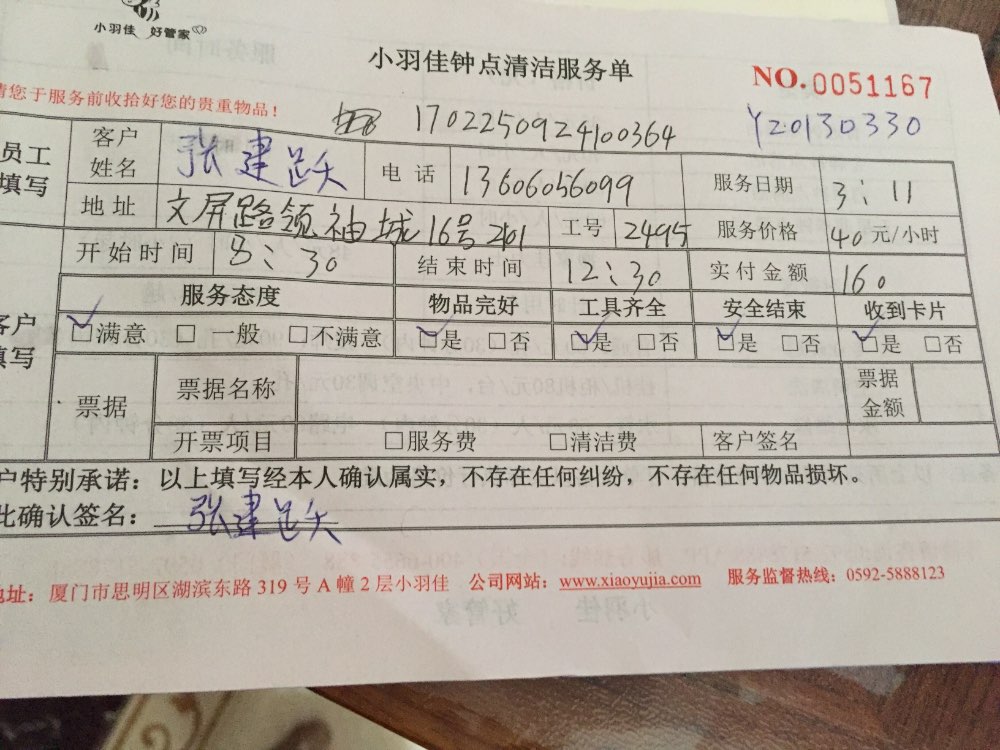 小羽佳 好管家
小羽佳钟点清洁服务单
NO.0051167
请您于服务前收拾好您的贵重物品！
1702250924100364
Y20130330
员工填写
客户姓名 张建跃 电话 13606056099 服务日期 3：11
地址 文屏路领袖城16号201 工号 2495 服务价格 40元/小时
开始时间 8：30 结束时间 12：30 实付金额 160
客户填写
服务态度 物品完好 工具齐全 安全结束 收到卡片
☑满意 □一般 □不满意 ☑是 □否 ☑是 □否 ☑是 □否 ☑是 □否
票据 票据名称 票据金额
开票项目 □服务费 □清洁费 客户签名
户特别承诺：以上填写经本人确认属实，不存在任何纠纷，不存在任何物品损坏。
此确认签名：张建跃
地址：厦门市思明区湖滨东路 319 号 A 幢 2 层小羽佳 公司网站：www.xiaoyujia.com 服务监督热线：0592-5888123